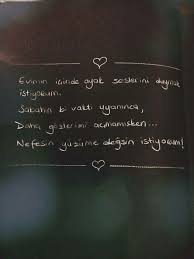 Evimin içinde ayak seslerini duymak
istiyorum.
Sabahın bi vakti uyanınca,
Daha gözlerimi açmamışken...
Nefesin yüzüme değsin istiyorum!